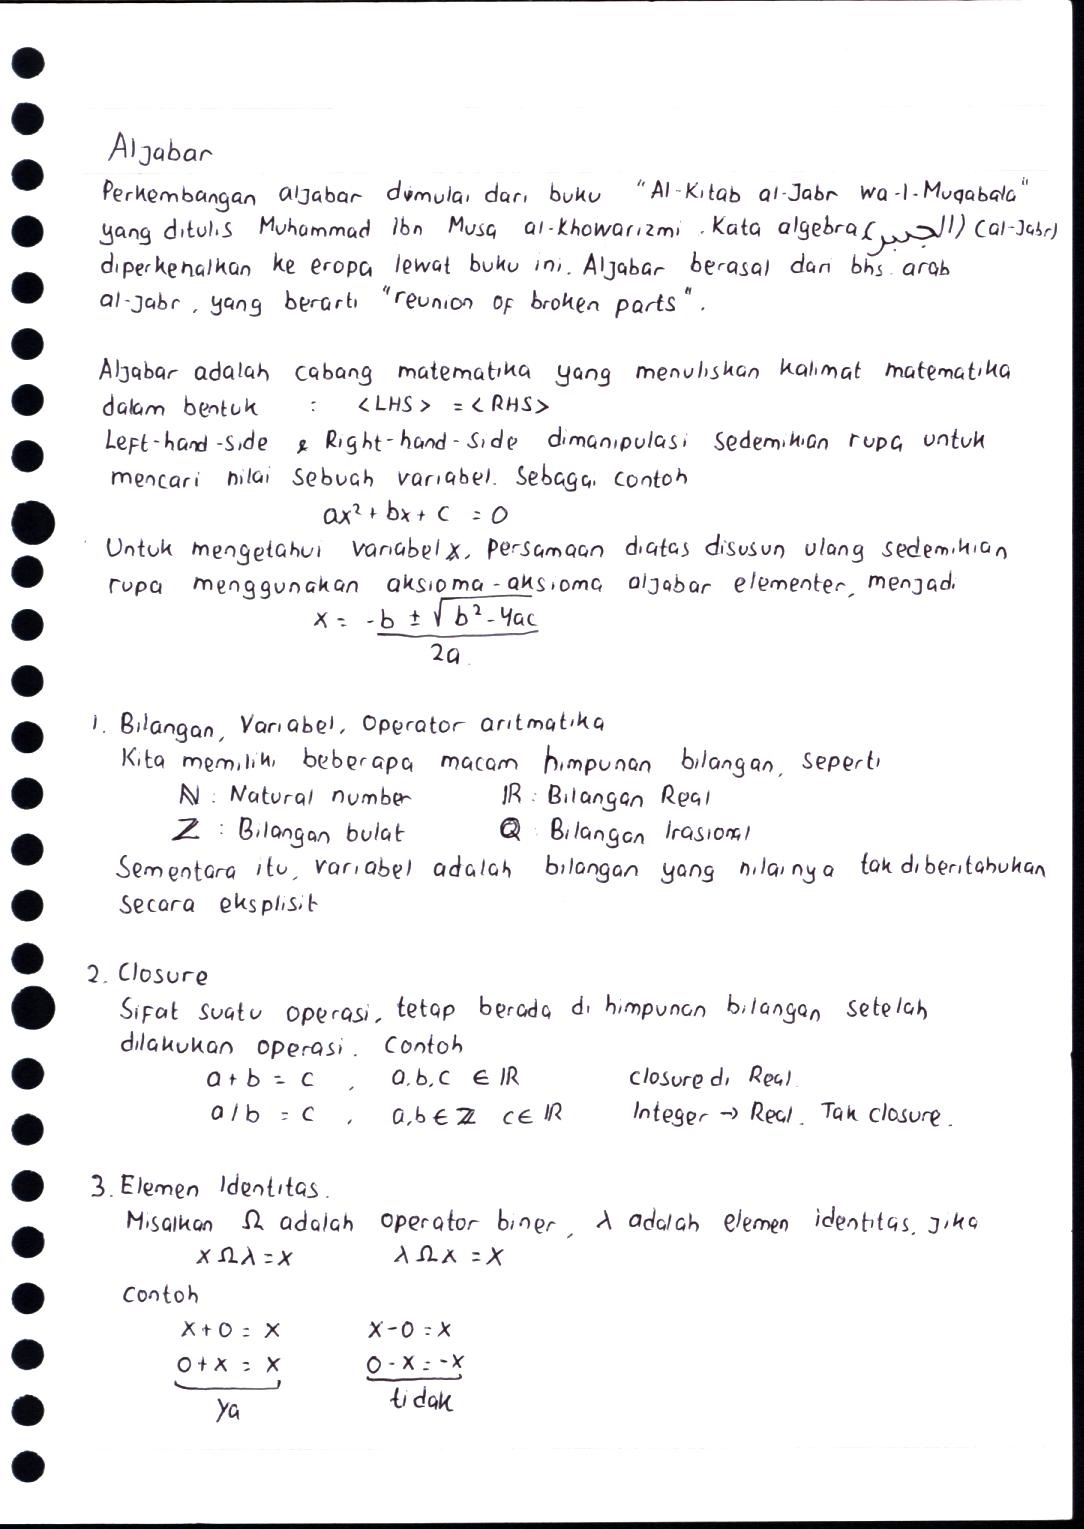 Aljabar
Perkembangan aljabar dimulai dari buku "Al-Kitab al-Jabr wa-l-Muqabala"
yang ditulis Muhammad Ibn Musa al-Khowarizmi. Kata algebra (الجبر) (al-Jabr)
diperkenalkan ke eropa lewat buku ini. Aljabar berasal dari bhs. arab
al-jabr, yang berarti "reunion of broken parts".
Aljabar adalah cabang matematika yang menuliskan kalimat matematika
dalam bentuk : <LHS> = <RHS>
Left-hand-side & Right-hand-side dimanipulasi sedemikian rupa untuk
mencari nilai sebuah variabel. Sebagai contoh
ax² + bx + c = 0
Untuk mengetahui variabel x, persamaan diatas disusun ulang sedemikian
rupa menggunakan aksioma-aksioma aljabar elementer, menjadi
x = -b ± √b² - 4ac
2a
1. Bilangan, Variabel, Operator aritmatika
Kita memiliki beberapa macam himpunan bilangan, seperti
ℕ : Natural number ℝ : Bilangan Real
Z : Bilangan bulat ℚ : Bilangan Irasional
Sementara itu, variabel adalah bilangan yang nilainya tak diberitahukan
secara eksplisit
2. Closure
Sifat suatu operasi, tetap berada di himpunan bilangan setelah
dilakukan operasi. Contoh
a + b = c , a,b,c ∈ ℝ closure di Real.
a / b = c , a,b ∈ ℤ c ∈ ℝ Integer → Real. Tak closure.
3. Elemen Identitas.
Misalkan Ω adalah operator biner, λ adalah elemen identitas, jika
x Ω λ = x λ Ω x = x
Contoh
x + 0 = x x - 0 = x
0 + x = x 0 - x = -x
ya tidak